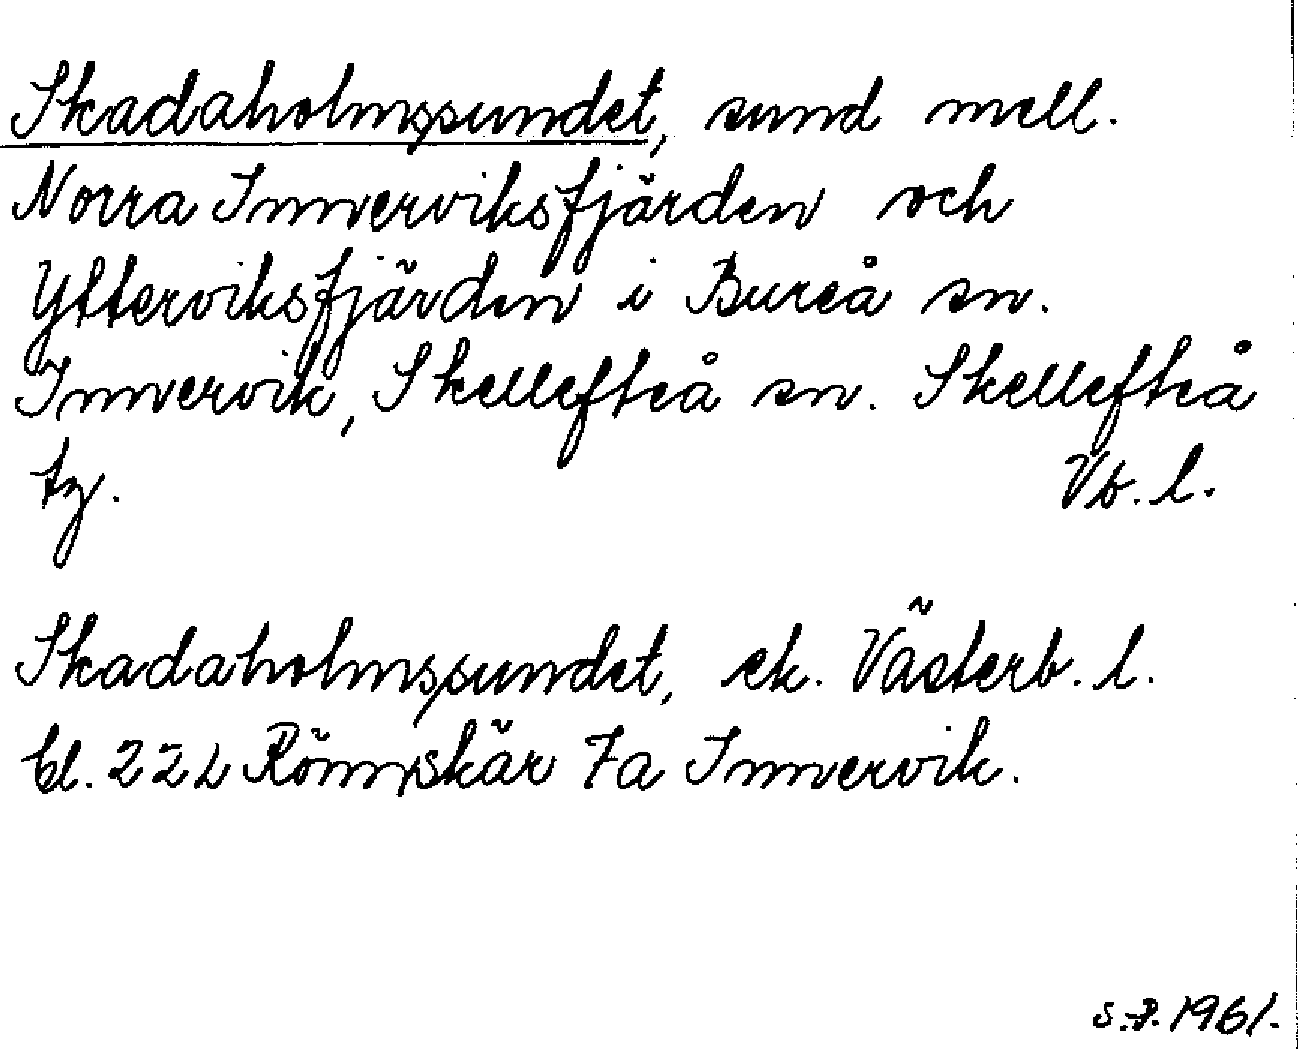 Skadaholmssundet, sund mell.
Norra Innerviksfjärden och
Ytterviksfjärden i Bureå sn.
Innervik, Skellefteå sn. Skellefteå
tg. Vb. l.
Skadaholmssundet, ek. Västerb. l.
bl. 22L Rönnskär 7a Innervik.
S.P. 1961.